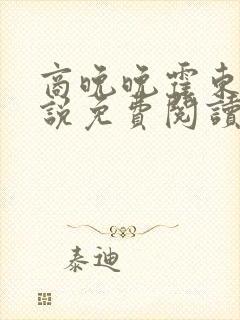 商晚晚霍東
說免費閱讀
泰迪